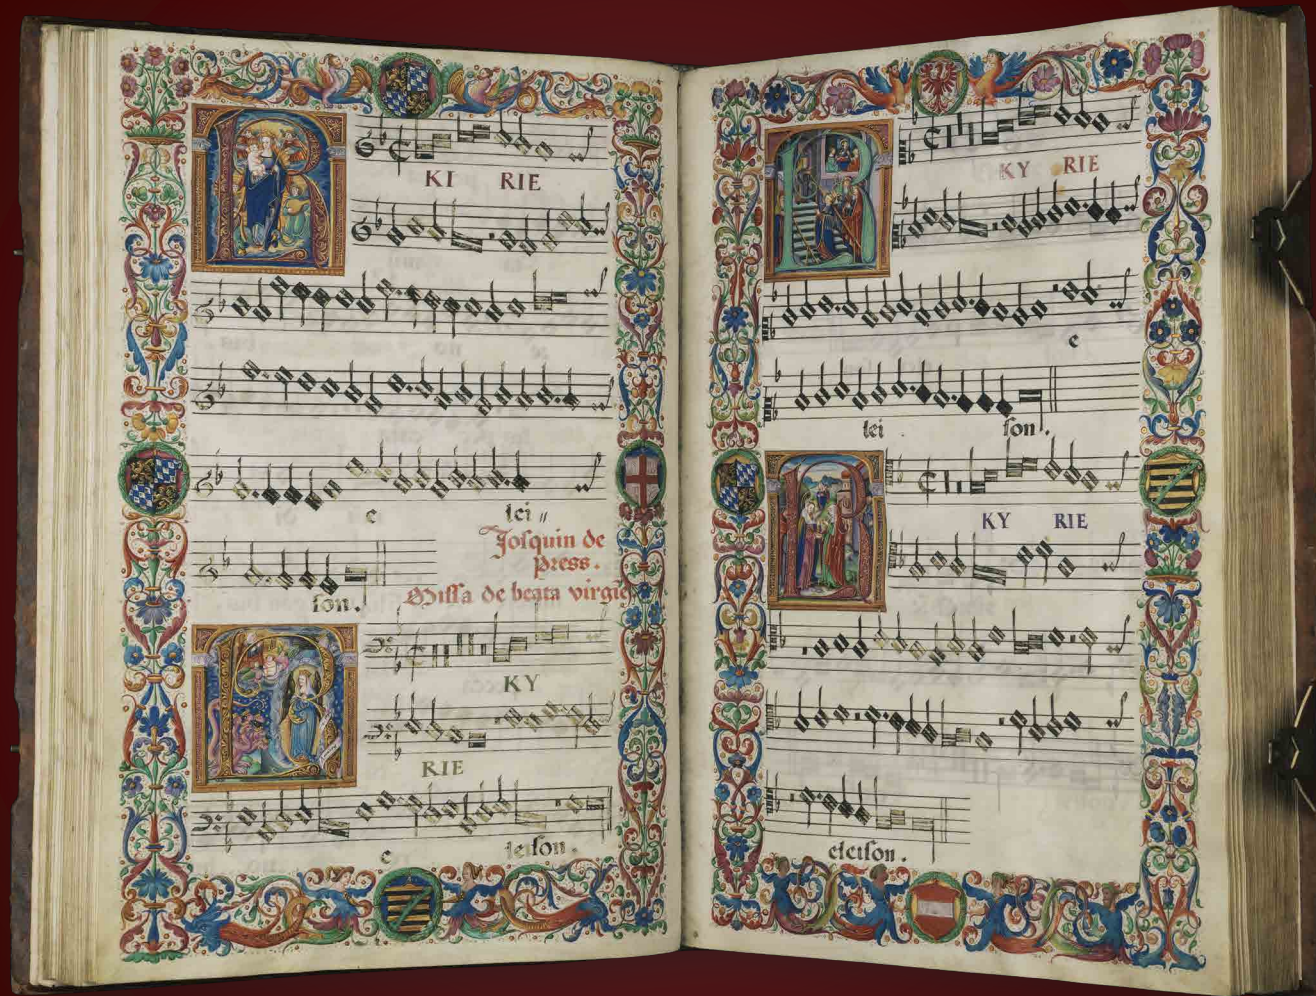 KI RIE
e lei
Josquin de
press.
Missa de beata virgie
son.
KY
RIE
e leison.
KY RIE
e
lei son.
KY RIE
eleison.